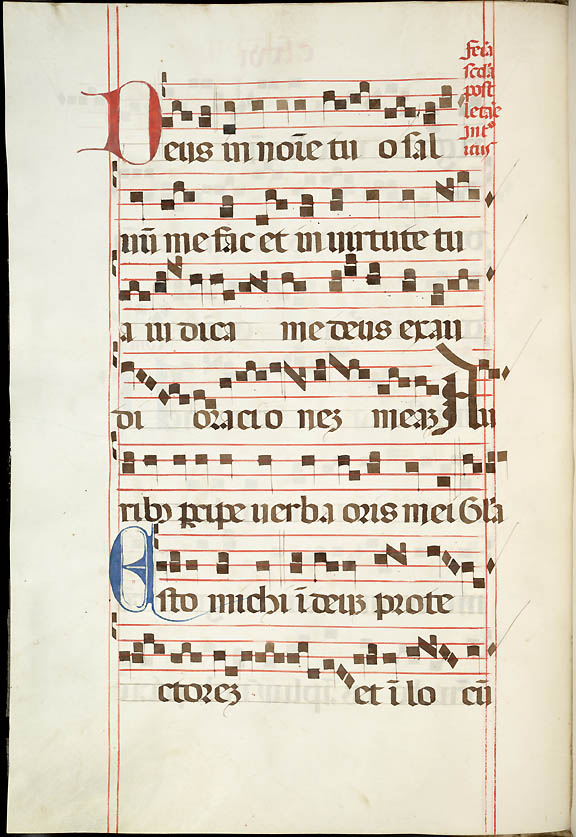 feria
scd'a
post
letāe
int°
itus
Deus in noīe tu o sal
uū me fac et in uirtute tu
a iudica me deus exau
di oracio nez meaz Au
ribꝫ ꝑcipe uerba oris mei Gl'a
Esto michi ī deuz prote
ctorez et ī lo cū